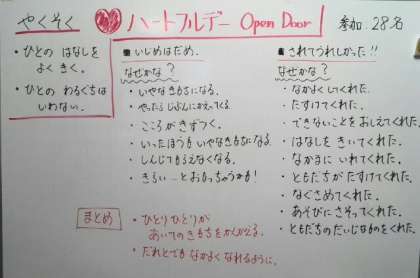 やくそく
・ひとの はなしを
よく きく。
・ひとの わるぐちは
いわない。
ハートフルデー Open Door
参加 28名
■いじめはだめ。
なぜかな?
・いやな きもちになる。
・やったら じぶんにかえってくる。
・こころが きずつく。
・いったほうも いやなきもちになる。
・しんじてもらえなくなる。
・きらい…とおもっちゃうかも!
■されてうれしかった!!
なぜかな?
・なかよくしてくれた。
・たすけてくれた。
・できないことをおしえてくれた。
・はなしを きいてくれた。
・なかまに いれてくれた。
・ともだちが たすけてくれた。
・なぐさめてくれた。
・あそびに さそってくれた。
・ともだちのだいじなものをくれた。
まとめ
・ひとりひとりが
あいての きもちを かんがえる。
・だれとでも なかよく なれるように。